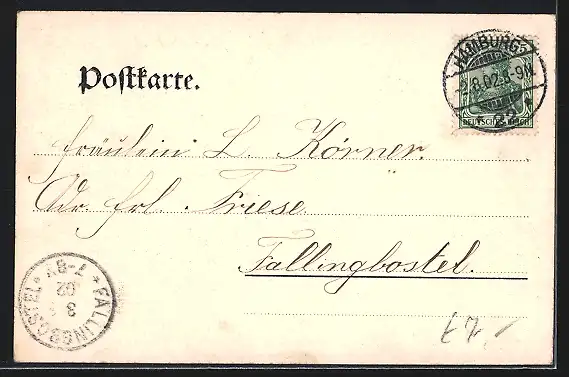 Postkarte.
HAMBURG
2.8.02.8-9N
DEUTSCHES REICH
Fräulein L. Körner.
Adr. Frl. Friese
Fallingbostel.
FALLINGBOSTEL
3
02
7-8V